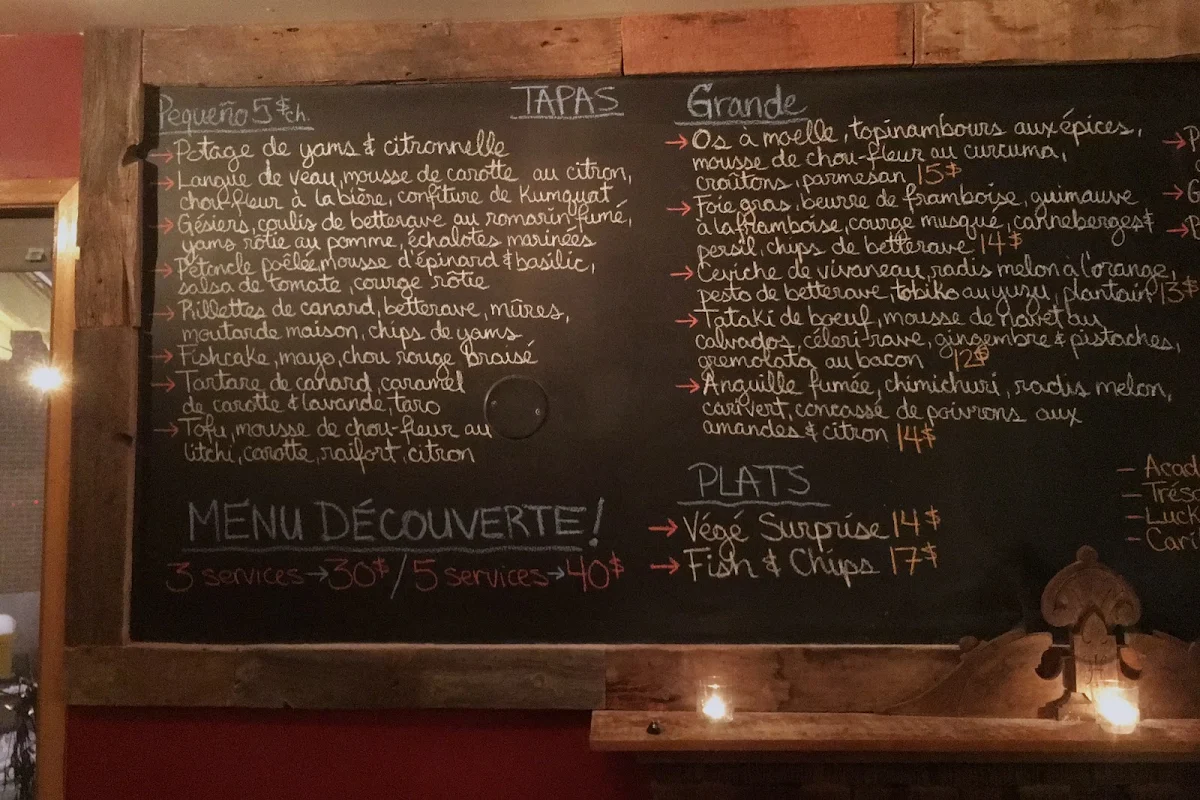 TAPAS
Pequeño 5$ ch.
→ Potage de yams & citronnelle
→ Langue de veau, mousse de carotte au citron,
chou-fleur à la bière, confiture de Kumquat
→ Gésiers, coulis de betterave au romarin fumé,
yams rôtie au pomme, échalotes marinées
→ Pétoncle poêlée, mousse d'épinard & basilic,
salsa de tomate, courge rôtie
→ Rillettes de canard, betterave, mûres,
moutarde maison, chips de yams
→ Fishcake, mayo, chou rouge braisé
→ Tartare de canard, caramel
de carotte & lavande, taro
→ Tofu, mousse de chou-fleur au
litchi, carotte, raifort, citron
MENU DÉCOUVERTE!
3 services → 30$ / 5 services → 40$
Grande
→ Os à moelle, topinambours aux épices,
mousse de chou-fleur au curcuma,
croûtons, parmesan 15$
→ Foie gras, beurre de framboise, guimauve
à la framboise, courge musqué, canneberges &
persil, chips de betterave 14$
→ Ceviche de vivaneau, radis melon à l'orange,
pesto de betterave, tobiko au yuzu, plantain 13$
→ Tataki de boeuf, mousse de navet au
calvados, céleri-rave, gingembre & pistaches,
gremolata au bacon 12$
→ Anguille fumée, chimichuri, radis melon,
cari vert, concassé de poivrons aux
amandes & citron 14$
PLATS
→ Végé Surprise 14$
→ Fish & Chips 17$
- Acad
- Trés
- Luck
- Cari